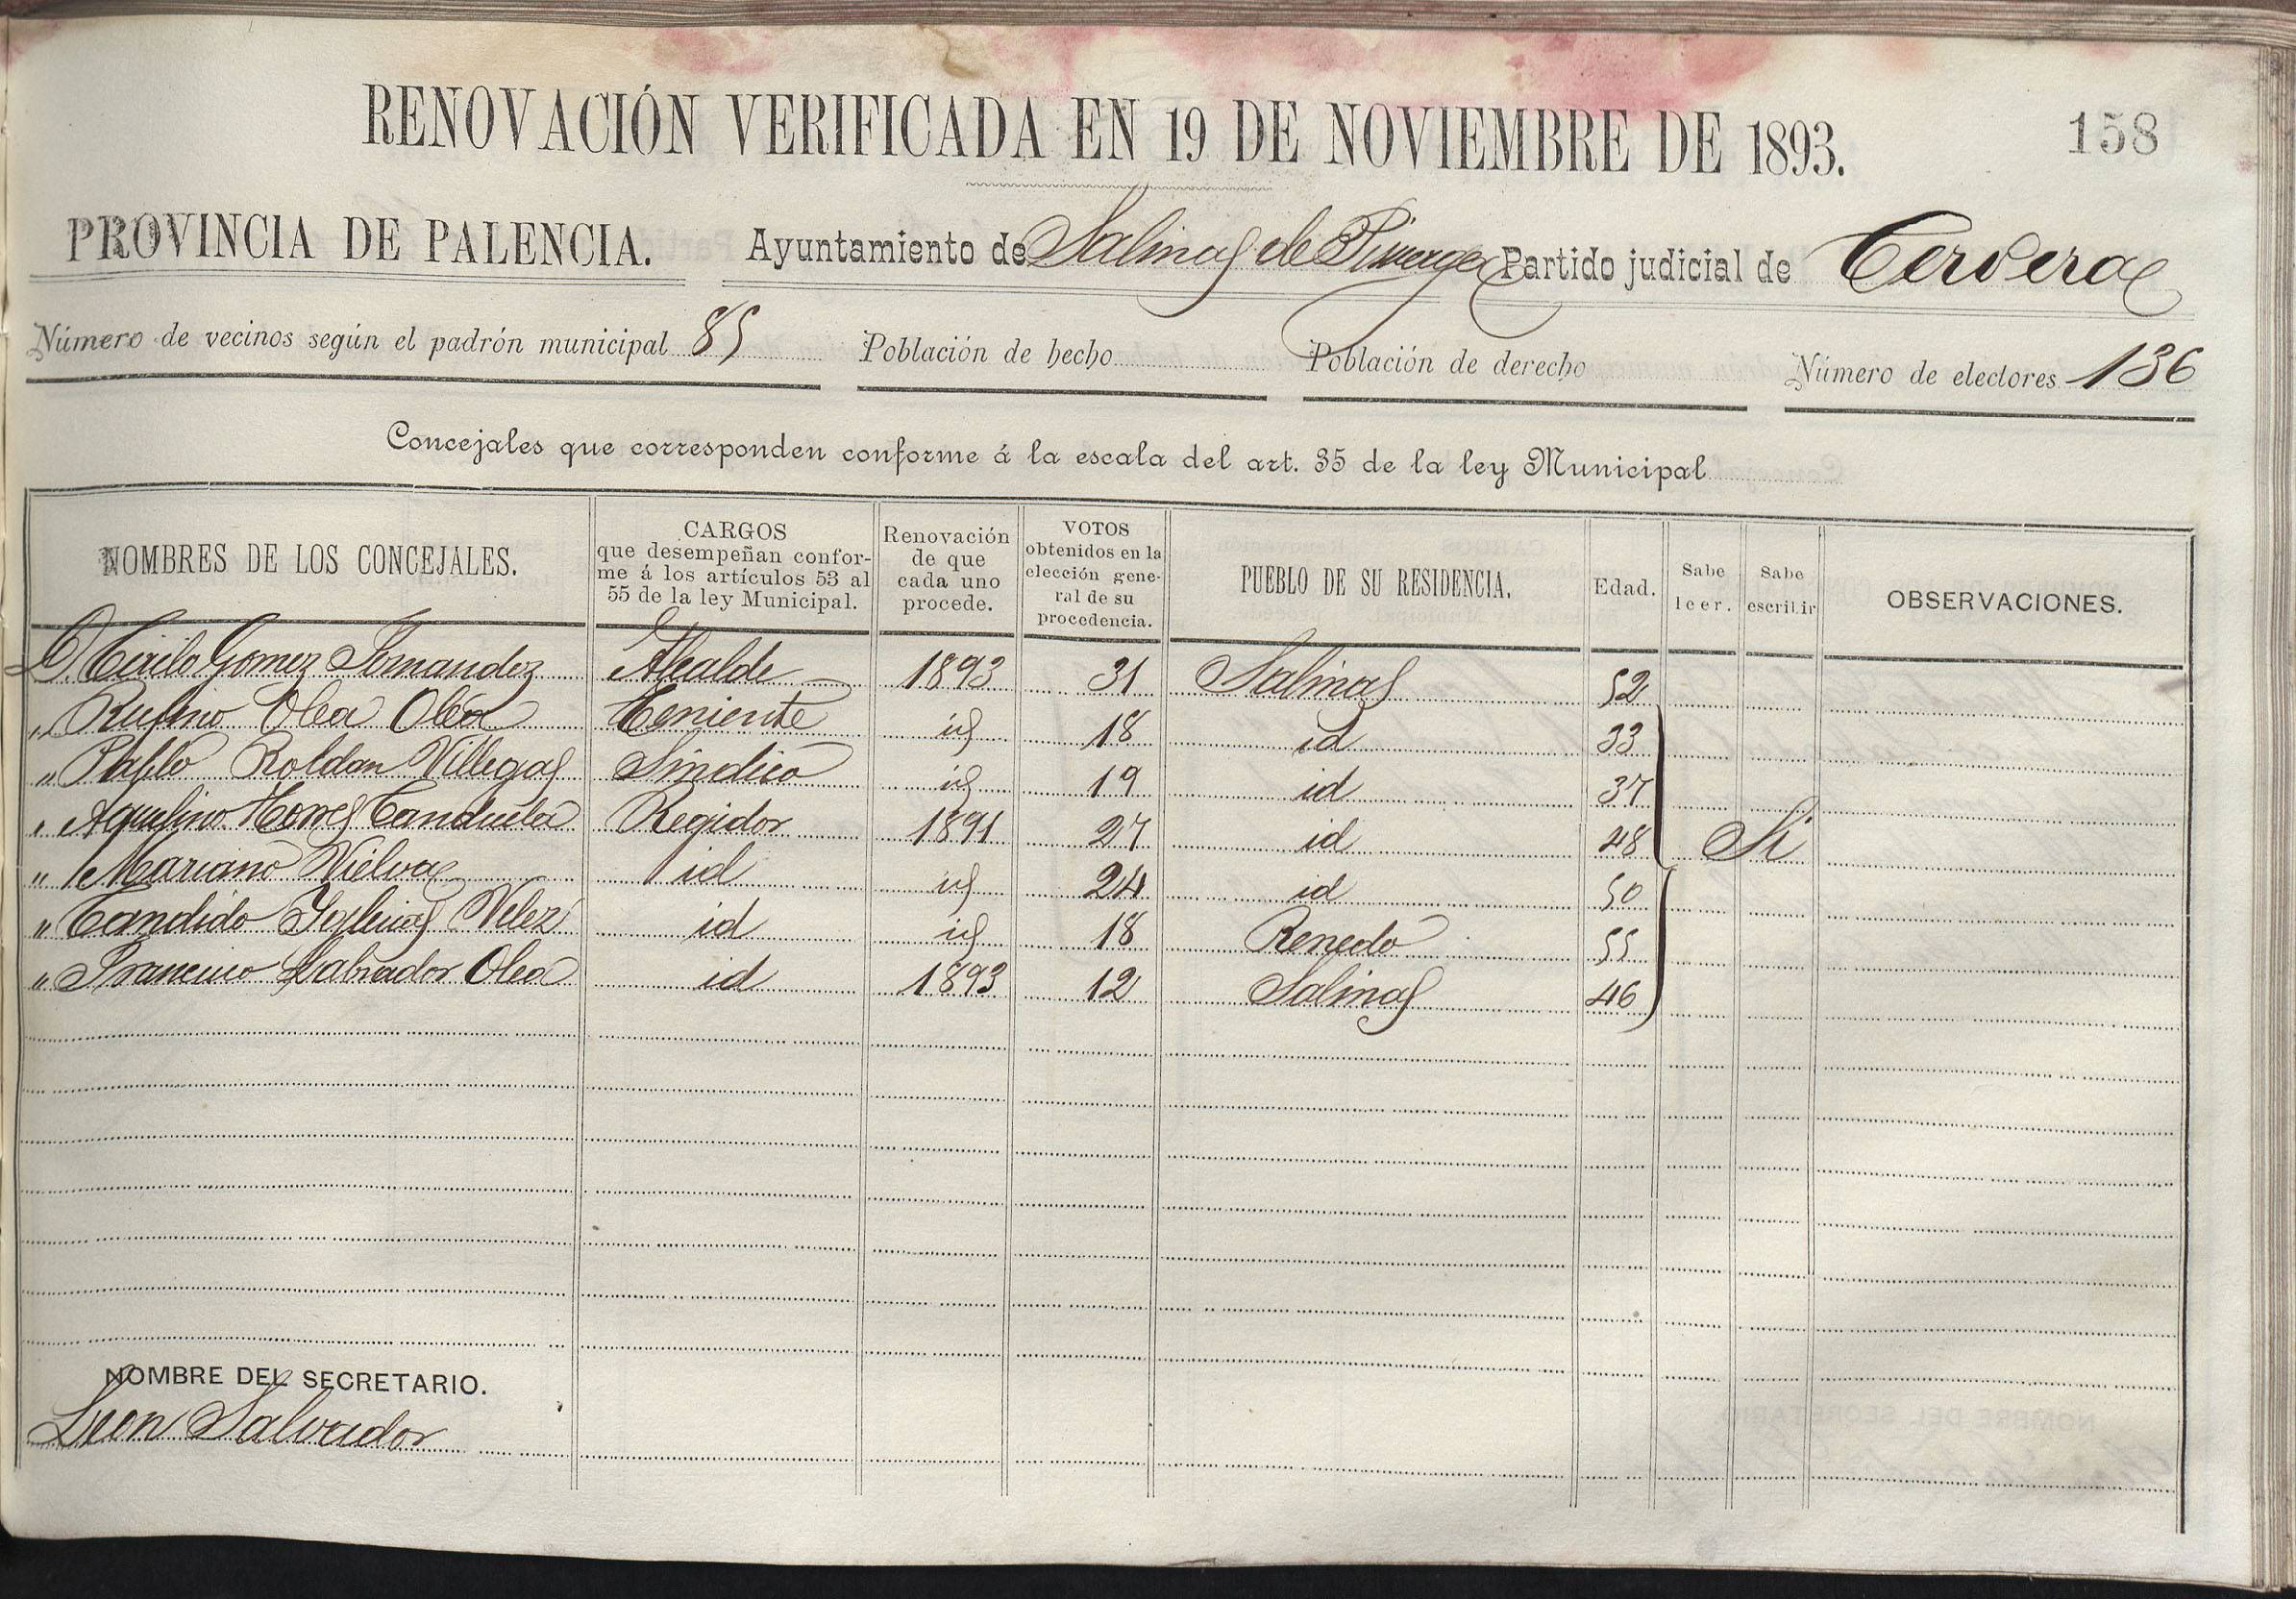 158
RENOVACIÓN VERIFICADA EN 19 DE NOVIEMBRE DE 1893.
PROVINCIA DE PALENCIA. Ayuntamiento de Salinas de Pisuerga Partido judicial de Cervera
Número de vecinos según el padrón municipal 85 Población de hecho Población de derecho Número de electores 136
Concejales que corresponden conforme á la escala del art. 35 de la ley Municipal
NOMBRES DE LOS CONCEJALES. CARGOS que desempeñan conforme á los artículos 53 al 55 de la ley Municipal. Renovación de que cada uno procede. VOTOS obtenidos en la elección general de su procedencia. PUEBLO DE SU RESIDENCIA. Edad. Sabe leer. Sabe escribir OBSERVACIONES.
D. Cirilo Gomez Fernandez Alcalde 1893 31 Salinas 52
„ Rufino Olea Olea Teniente id 18 id 33
„ Pablo Roldan Villegas Sindico id 19 id 37
„ Aquilino Torres Canduela Regidor 1891 27 id 48 Si
„ Mariano Vielva id id 24 id 50
„ Candido Iglesias Velez id id 18 Renedo 55
„ Francisco Labrador Olea id 1893 12 Salinas 46
NOMBRE DEL SECRETARIO.
Leon Salvador